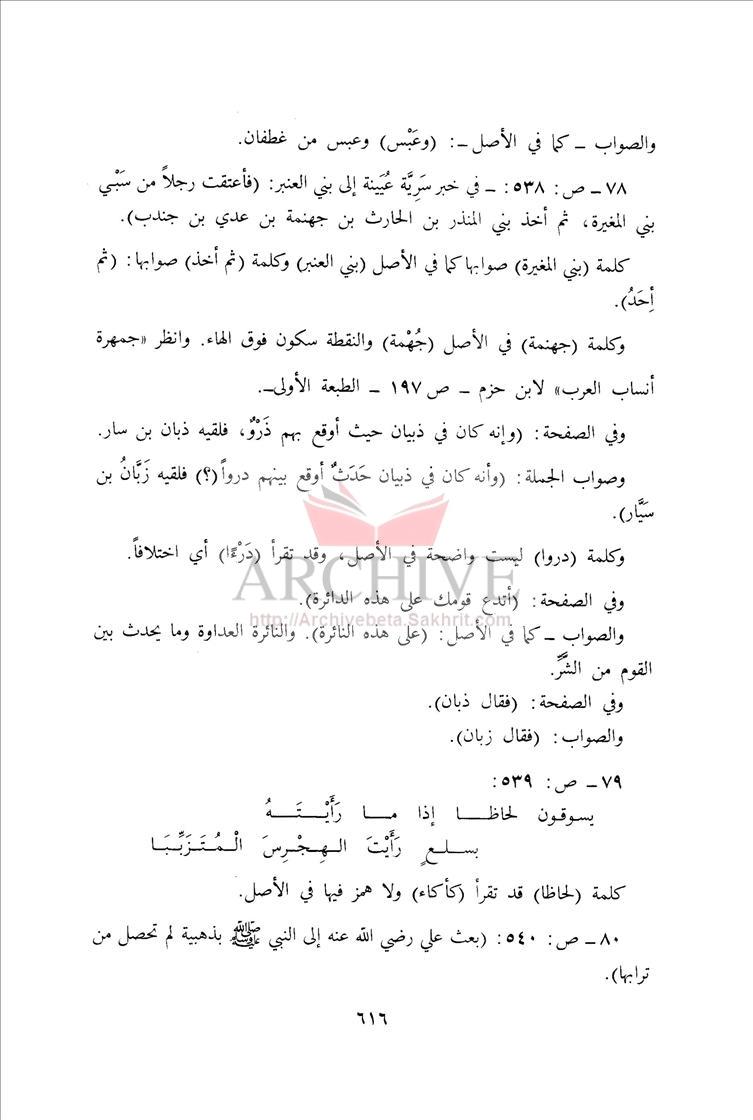 والصواب ــ كما في الأصل ــ: (وعَبْس) وعبس من غطفان.
٧٨ ــ ص: ٥٣٨: ــ في خبر سَرِيَّة عُيَينة إلى بني العنبر: (فأعتقت رجلاً من سَبْي
بني المغيرة، ثم أخذ بني المنذر بن الحارث بن جهنمة بن عدي بن جندب).
كلمة (بني المغيرة) صوابها كما في الأصل (بني العنبر) وكلمة (ثم أخذ) صوابها: (ثم
أحَدُ).
وكلمة (جهنمة) في الأصل (جُهْمة) والنقطة سكون فوق الهاء. وانظر «جمهرة
أنساب العرب» لابن حزم ــ ص ١٩٧ ــ الطبعة الأولى ــ.
وفي الصفحة: (وإنه كان في ذبيان حيث أوقع بهم ذَرْوٌ، فلقيه ذبان بن سار.
وصواب الجملة: (وأنه كان في ذبيان حَدَثٌ أوقع بينهم درواً (؟) فلقيه زَبَّانُ بن
سَيَّار).
وكلمة (دروا) ليست واضحة في الأصل، وقد تقرأ (دَرْءًا) أي اختلافاً.
ARCHIVE
وفي الصفحة: (أتدع قومك على هذه الدائرة).
http://Archivebeta.Sakhrit.com
والصواب ــ كما في الأصل: (على هذه النائرة). والنائرة العداوة وما يحدث بين
القوم من الشَّرِّ.
وفي الصفحة: (فقال ذبان).
والصواب: (فقال زبان).
٧٩ ــ ص: ٥٣٩:
يسوقون لحاظا إذا ما رَأَيْتَهُ
بسلعٍ رَأَيْتَ الهِجْرِسَ الْمُتَزَبِّبَا
كلمة (لحاظا) قد تقرأ (كأكاء) ولا همز فيها في الأصل.
٨٠ ــ ص: ٥٤٠: (بعث علي رضي الله عنه إلى النبي ﷺ بذهبية لم تحصل من
ترابها).
٦١٦